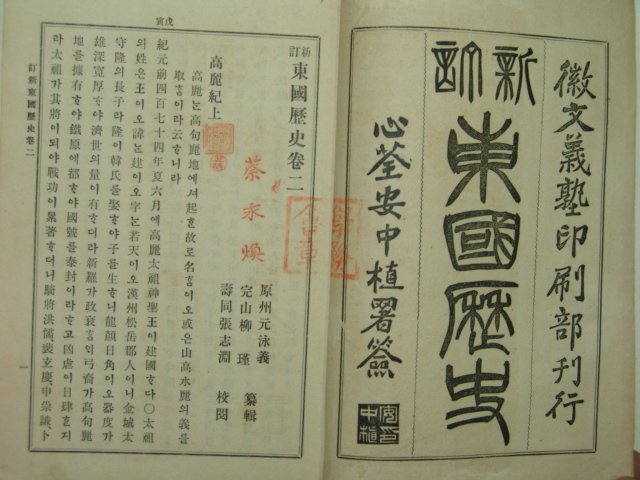 徽文義塾印刷部刊行
新訂東國歷史
心荃安中植署簽
戊寅
新訂東國歷史卷二
原州元泳義
完山柳瑾 纂輯
壽同張志淵 校閱
蔡永煥
高麗紀上
高麗는高句麗地에셔起故로名이오或은山高水麗의義를
取이라云니라
紀元前四百七十四年夏六月에高麗太祖神聖王이建國다○太祖
의姓은王이오諱는建이오字는若天이오漢州松岳郡人이니金城太
守隆의長子라隆이韓氏를娶야子를生니龍顔日角이오器度가
雄深寬厚야濟世의量이有더라新羅가政衰에弓裔가高句麗
地를據有야鐵原에都야國號를泰封이라고凶虐이日肆지
라太祖가其將이되야戰功이累著더니騎將洪儒裴玄慶申崇謙卜
訂新東國歷史卷二
一